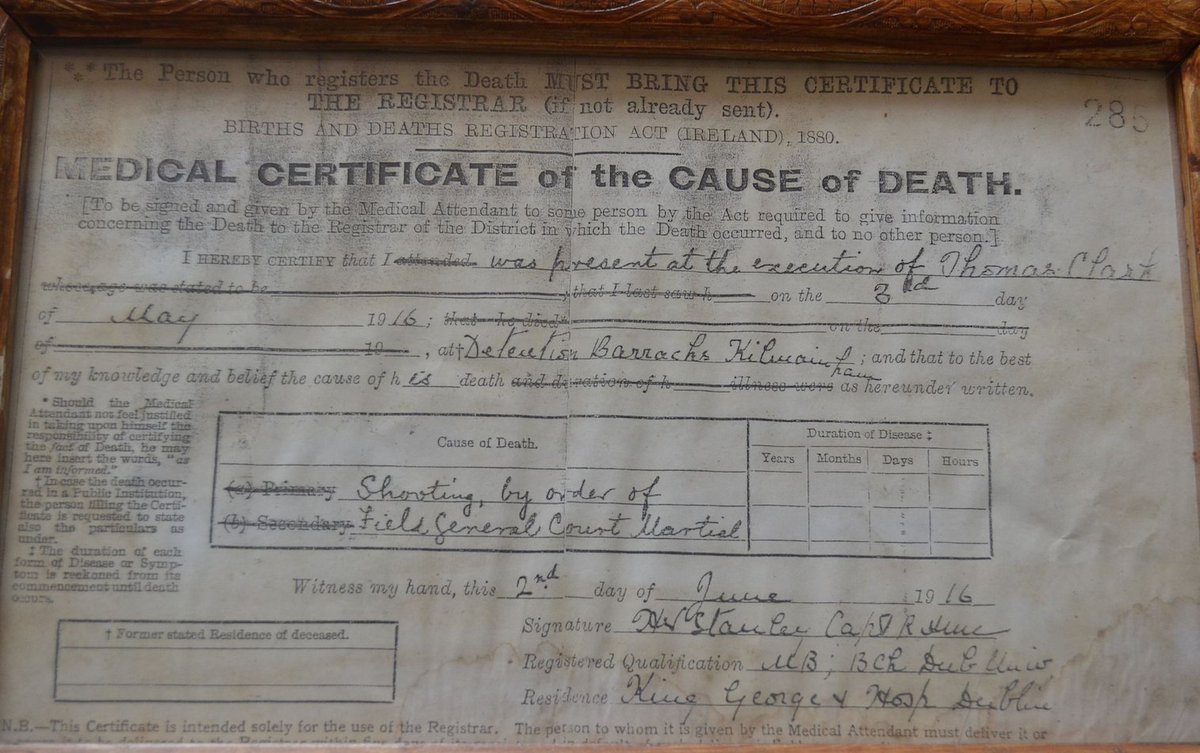 *** The Person who registers the Death MUST BRING THIS CERTIFICATE TO
THE REGISTRAR (if not already sent).
285
BIRTHS AND DEATHS REGISTRATION ACT (IRELAND), 1880.
MEDICAL CERTIFICATE of the CAUSE of DEATH.
[To be signed and given by the Medical Attendant to some person by the Act required to give information
concerning the Death to the Registrar of the District in which the Death occurred, and to no other person.]
I HEREBY CERTIFY that I attended was present at the execution of Thomas Clark
whose age was stated to be , that I last saw h on the 3rd day
of May 1916; that he died* on the day
of 19 , at† Detention Barracks Kilmainham; and that to the best
of my knowledge and belief the cause of h is death and duration of h illness were as hereunder written.
* Should the Medical
Attendant not feel justified
in taking upon himself the
responsibility of certifying
the fact of Death, he may
here insert the words, "as
I am informed."
† In case the death occur-
red in a Public Institution,
the person filling the Certi-
ficate is requested to state
also the particulars as
under.
‡ The duration of each
form of Disease or Symp-
tom is reckoned from its
commencement until death
occurs.
Cause of Death.
Duration of Disease ‡
Years Months Days Hours
(a) Primary Shooting, by order of
(b) Secondary Field General Court Martial
Witness my hand, this 2nd day of June 1916
Signature Stanley Capt R
Registered Qualification MB; BCh Dub Univ
Residence King George V Hosp Dublin
† Former stated Residence of deceased.
N.B.—This Certificate is intended solely for the use of the Registrar. The person to whom it is given by the Medical Attendant must deliver it or